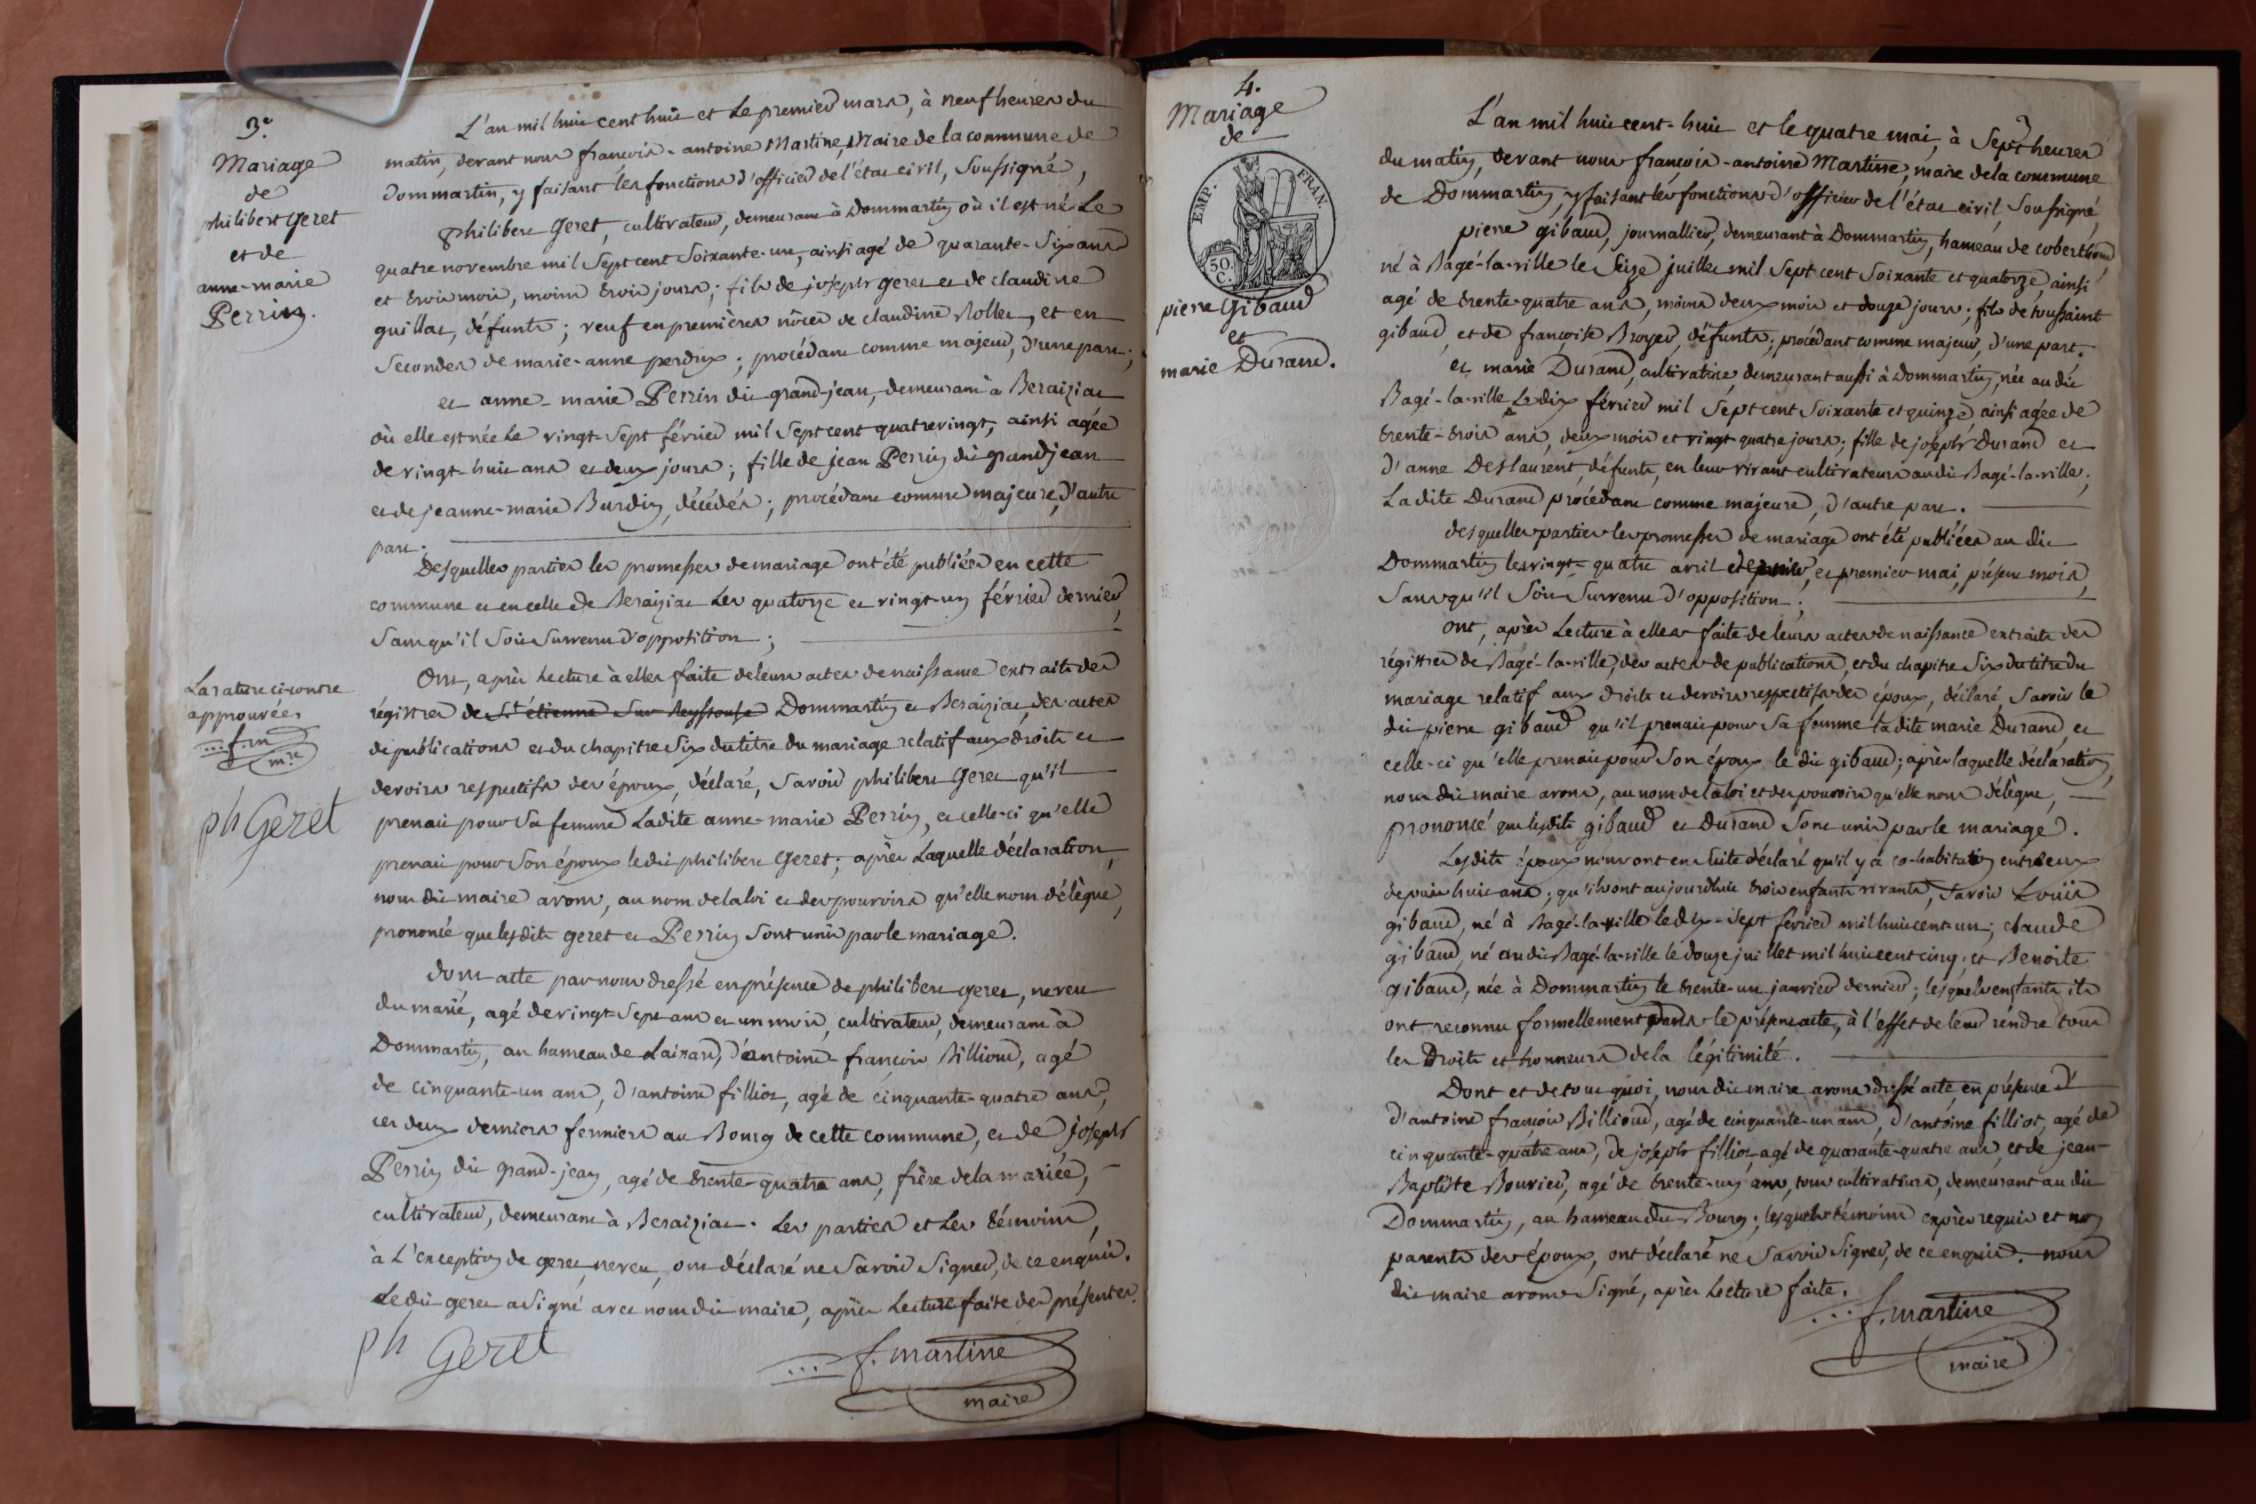 3.e
Mariage
de
philibert Geret
et de
anne-marie
Perrin.
L'an mil huit cent huit et le premier mars, à neuf heures du
matin, devant nous françois-antoine Martine, Maire de la commune de
Dommartin, y faisant les fonctions d'officier de l'état civil, Soussigné,
philibert Geret, cultivateur, demeurant à Dommartin où il est né Le
quatre novembre mil Sept cent Soixante-un, ainsi agé de quarante-Six ans
et trois mois, moins trois jours; fils de joseph geret et de claudine
guillat, défunts; veuf en premières nôces de claudine Rollet, et en
Secondes de marie-anne perdrix; procédant comme majeur, d'une part;
et anne-marie Perrin dit grand-jean, demeurant à Beraiziat
où elle est née Le vingt-Sept février mil Sept cent quatrevingt, ainsi agée
de vingt-huit ans et deux jours; fille de jean Perrin dit grandjean
et de jeanne-marie Burdin, décédés; procédant comme majeure, d'autre
part.
Desquelles parties les promesses de mariage ont été publiées en cette
commune et en celle de Beraiziat Les quatorze et vingt-un février dernier,
Sans qu'il Soit Survenu d'opposition;
Ont, après Lecture à elles faite de leurs actes de naissance extraits des
régistres de St étienne Sur Reyssouse Dommartin et Beraiziat, des actes
de publications et du chapitre Six du titre du mariage relatif aux droits et
devoirs respectifs des époux, déclaré, Savoir philibert Geret qu'il
prenait pour Sa femme Ladite anne-marie Perrin, et celle-ci qu'elle
prenait pour Son époux ledit philibert Geret; après Laquelle déclaration,
nous dit maire avons, au nom de la loi et des pouvoirs qu'elle nous délègue,
prononcé que lesdits geret et Perrin Sont unis par le mariage.
dont acte par nous dressé en présence de philibert geret, neveu
du marié, agé de vingt-Sept ans et un mois, cultivateur, demeurant à
Dommartin, au hameau de Laizard, d'antoine-françois Billioud, agé
de cinquante-un ans, d'antoine filliot, agé de cinquante-quatre ans,
ces deux derniers fermiers au Bourg de cette commune, et de joseph
Perrin dit grand-jean, agé de trente-quatre ans, frère de la mariée,
cultivateur, demeurant à Beraiziat. Les parties et Les témoins,
à L'exception de geret neveu, ont déclaré ne Savoir Signer, de ce enquis.
Ledit geret a Signé avec nous dit maire, après Lecture faite des présentes.
ph Geret
f. martine
maire
La rature ci contre
approuvée.
f.m
m.re
ph Geret
4.
Mariage
de
EMP. FRAN.
50. C.
pierre Gibaud
et
marie Durand.
L'an mil huit cent-huit et le quatre mai, à Sept heures
du matin, devant nous françois-antoine Martine, maire de la commune
de Dommartin, y faisant les fonctions d'officier de l'état civil, Soussigné,
pierre gibaud, journallier, demeurant à Dommartin, hameau de coberthoud,
né à Bagé-la-ville le Seize juillet mil Sept cent Soixante et quatorze, ainsi
agé de trente-quatre ans, moins deux mois et douze jours; fils de toussaint
gibaud, et de françoise Broyer, défunts; procédant comme majeur, d'une part.
et marie Durand, cultivatrice, demeurant aussi à Dommartin, née audit
Bagé-la-ville Le dix février mil Sept cent Soixante et quinze ainsi agée de
trente-trois ans, deux mois et vingt quatre jours; fille de joseph Durand et
d'anne Deslaurent, défunts, en leur vivant cultivateurs audit Bagé-la-ville;
Ladite Durand procédant comme majeure, d'autre part.
desquelles parties les promesses de mariage ont été publiées au dit
Dommartin les vingt-quatre avril et premier mai, présent mois,
Sans qu'il Soit Survenu d'opposition;
Ont, après Lecture à elles faite de leurs actes de naissance extraits des
régistres de Bagé-la-ville, des actes de publications, et du chapitre Six du titre du
mariage relatif aux droits et devoirs respectifs des époux, déclaré, Savoir le
dit pierre gibaud qu'il prenait pour Sa femme ladite marie Durand, et
celle-ci qu'elle prenait pour Son époux le dit gibaud; après laquelle déclaration,
nous dit maire avons, au nom de la loi et des pouvoirs qu'elle nous délègue,
prononcé que lesdits gibaud et Durand Sont unis par le mariage.
Lesdits époux nous ont ensuite déclaré qu'il y a co-habitation entr'eux
depuis huit ans; qu'ils ont aujourdhui trois enfants vivants, Savoir Louis
gibaud, né à Bagé-la-ville le dix-Sept février mil huit cent-un; claude
gibaud, né audit Bagé-la-ville le douze juillet mil huit cent cinq; et Benoite
gibaud, née à Dommartin le trente-un janvier dernier; lesquels enfants ils
ont reconnu formellement dans le présent acte, à l'effet de leur rendre tous
les Droits et honneurs de la légitimité.
Dont et de tout quoi, nous dit maire avons dressé acte, en présence
d'antoine françois Billioud, agé de cinquante-un ans, d'antoine filliot, agé de
cinquante-quatre ans, de joseph filliot agé de quarante-quatre ans, et de jean-
Baptiste Bouvier, agé de trente-un ans, tous cultivateurs, demeurant au dit
Dommartin, au hameau du Bourg; lesquels témoins exprès requis et non
parents des époux, ont déclaré ne Savoir Signer, de ce enquis. nous
dit maire avons Signé, après Lecture faite.
f. martine
maire